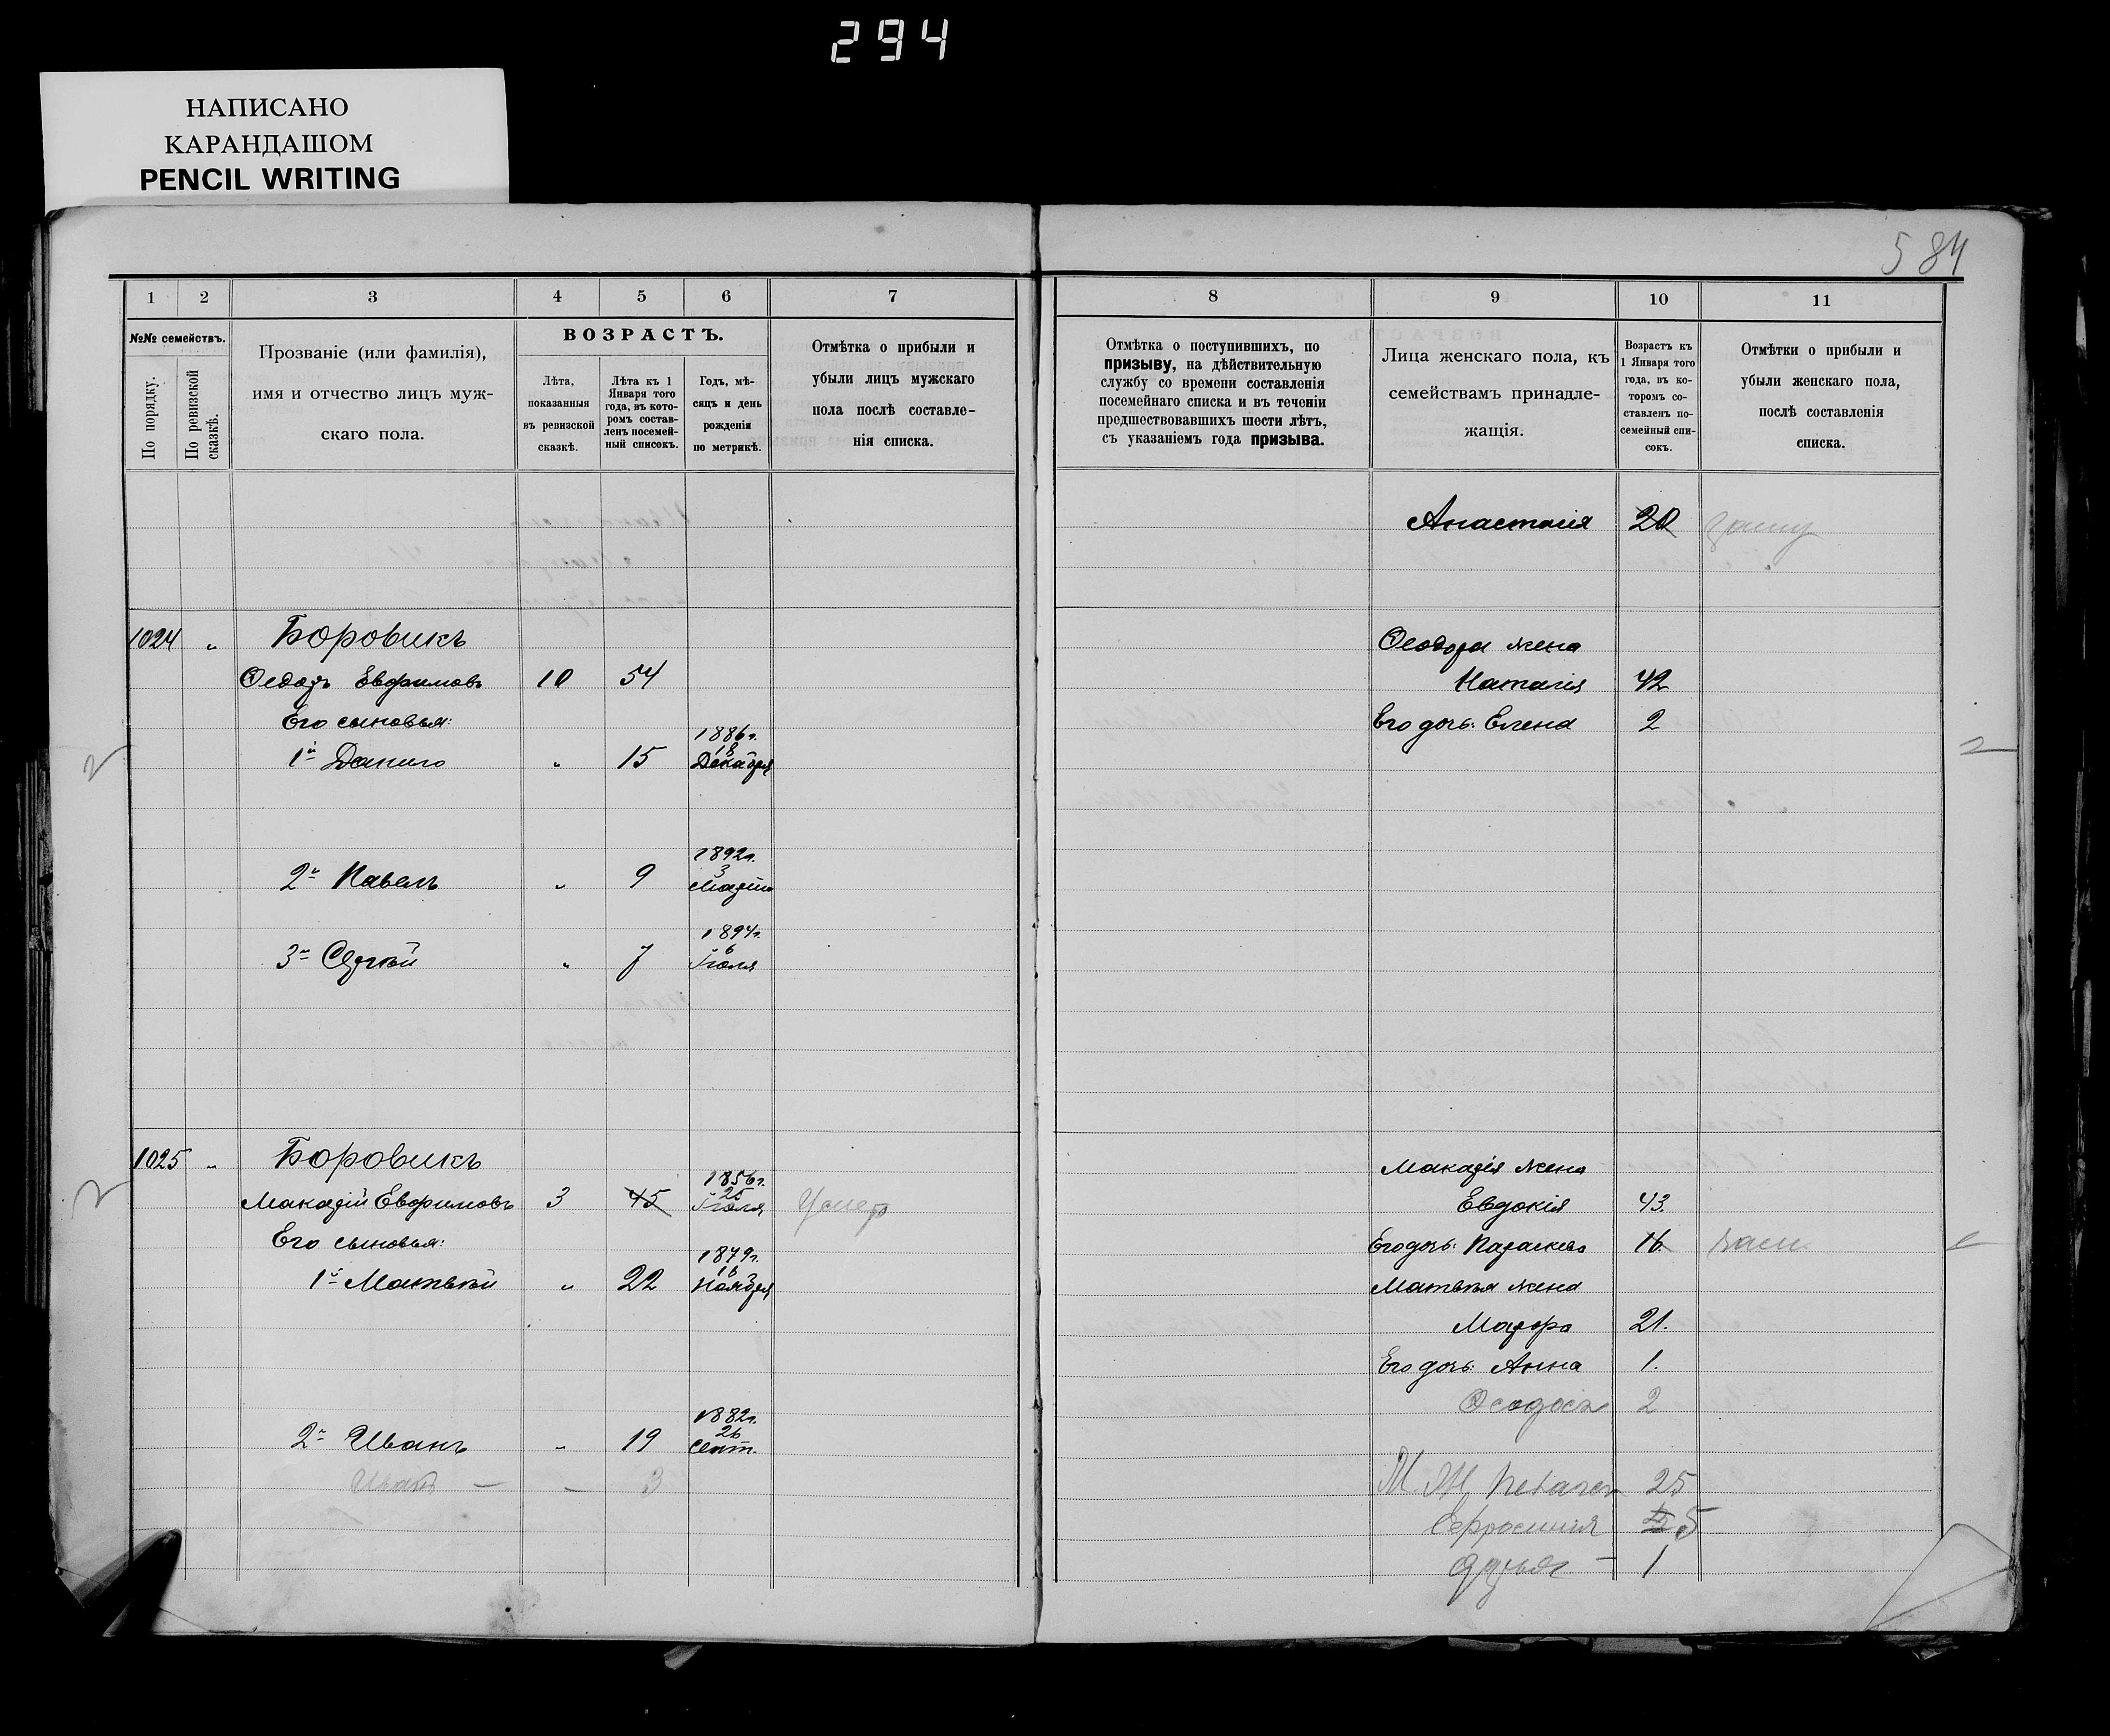 294
НАПИСАНО
КАРАНДАШОМ
PENCIL WRITING
584
1 2 3 4 5 6 7
№№ семействъ.
По порядку.
По ревизской сказкѣ.
Прозваніе (или фамилія),
имя и отчество лицъ муж-
скаго пола.
ВОЗРАСТЪ.
Лѣта,
показанныя
въ ревизской
сказкѣ.
Лѣта къ 1
Января того
года, въ кото-
ромъ состав-
ленъ посемей-
ный списокъ.
Годъ, мѣ-
сяцъ и день
рожденія
по метрикѣ.
Отмѣтка о прибыли и
убыли лицъ мужскаго
пола послѣ составле-
нія списка.
8 9 10 11
Отмѣтка о поступившихъ, по
призыву, на дѣйствительную
службу со времени составленія
посемейнаго списка и въ теченіи
предшествовавшихъ шести лѣтъ,
съ указаніемъ года призыва.
Лица женскаго пола, къ
семействамъ принадле-
жащія.
Возрастъ къ
1 Января того
года, въ ко-
торомъ со-
ставленъ по-
семейный спи-
сокъ.
Отмѣтки о прибыли и
убыли женскаго пола,
послѣ составленія
списка.
Анастасія 20
1024 „ Боровикъ
Ѳедоръ Евфимовъ 10 54
Его сыновья:
1й Данило „ 15 1886г. 18 Декабря
2й Павелъ „ 9 1892г. 3 Марта
3й Сергѣй „ 7 1894г. 6 Іюля
Ѳеодора жена
Наталія 42
Его дочь: Елена 2
2
2
1025 „ Боровикъ
Макарій Евфимовъ 3 45 1856г. 25 Іюля Умер
Его сыновья:
1й Матвѣй „ 22 1879г. 16 Ноября
2й Иванъ „ 19 1882г. 26 Сент.
Иван — — 3
2
Макарія жена
Евдокія 43.
Его дочь: Параскева 16.
Матвѣя жена
Мавра 21.
Его дочь: Анна 1.
Ѳеодосія 2
25
Ефросинія 5
1